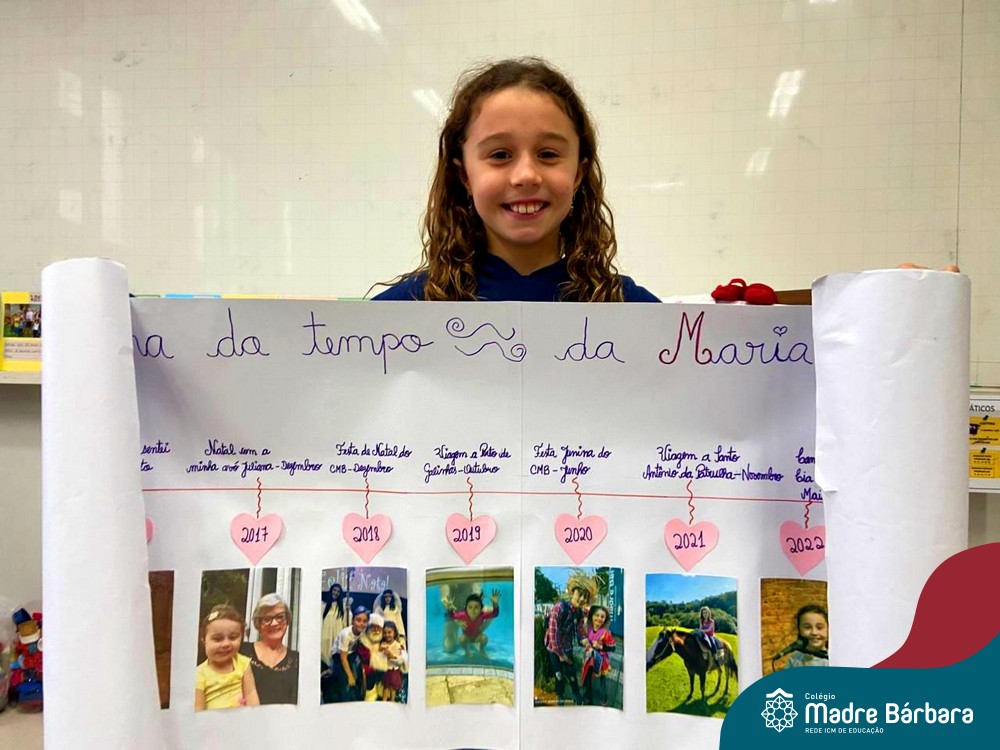 ha do tempo da Maria
sentei
Natal com a
minha avó Juliana - Dezembro
Festa de Natal do
CMB - Dezembro
Viagem a Porto de
Galinhas - Outubro
Festa Junina do
CMB - Junho
Viagem a Santo
Antônio da Patrulha - Novembro
2017
2018
2019
2020
2021
2022
Natal
ÁTICOS
Colégio
Madre Bárbara
REDE ICM DE EDUCAÇÃO